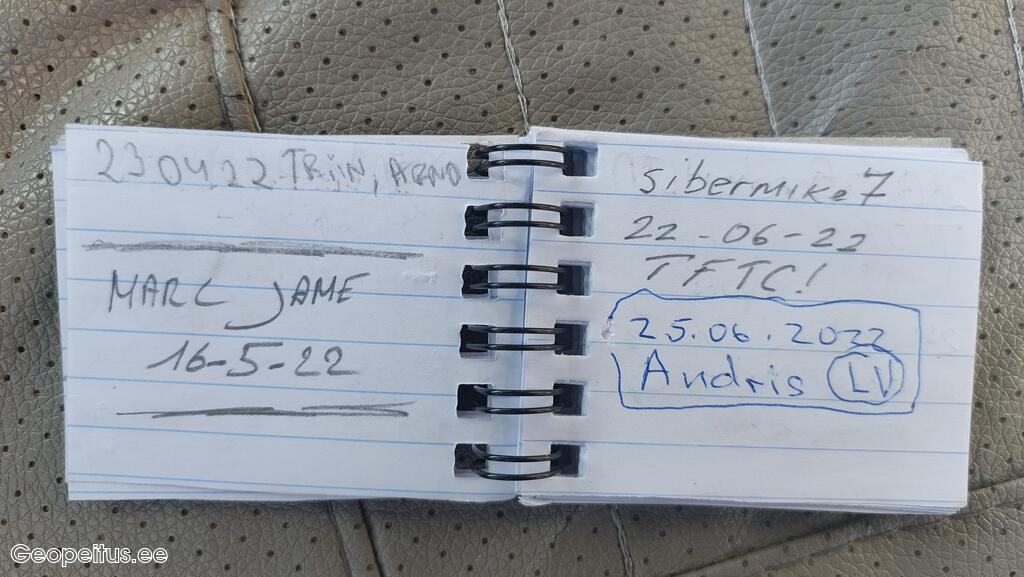 23 04.22 TRiiN, ARNO
MARC JAME
16-5-22
sibermike7
22-06-22
TFTC!
25.06.2022
Andris LV
Geopeitus.ee